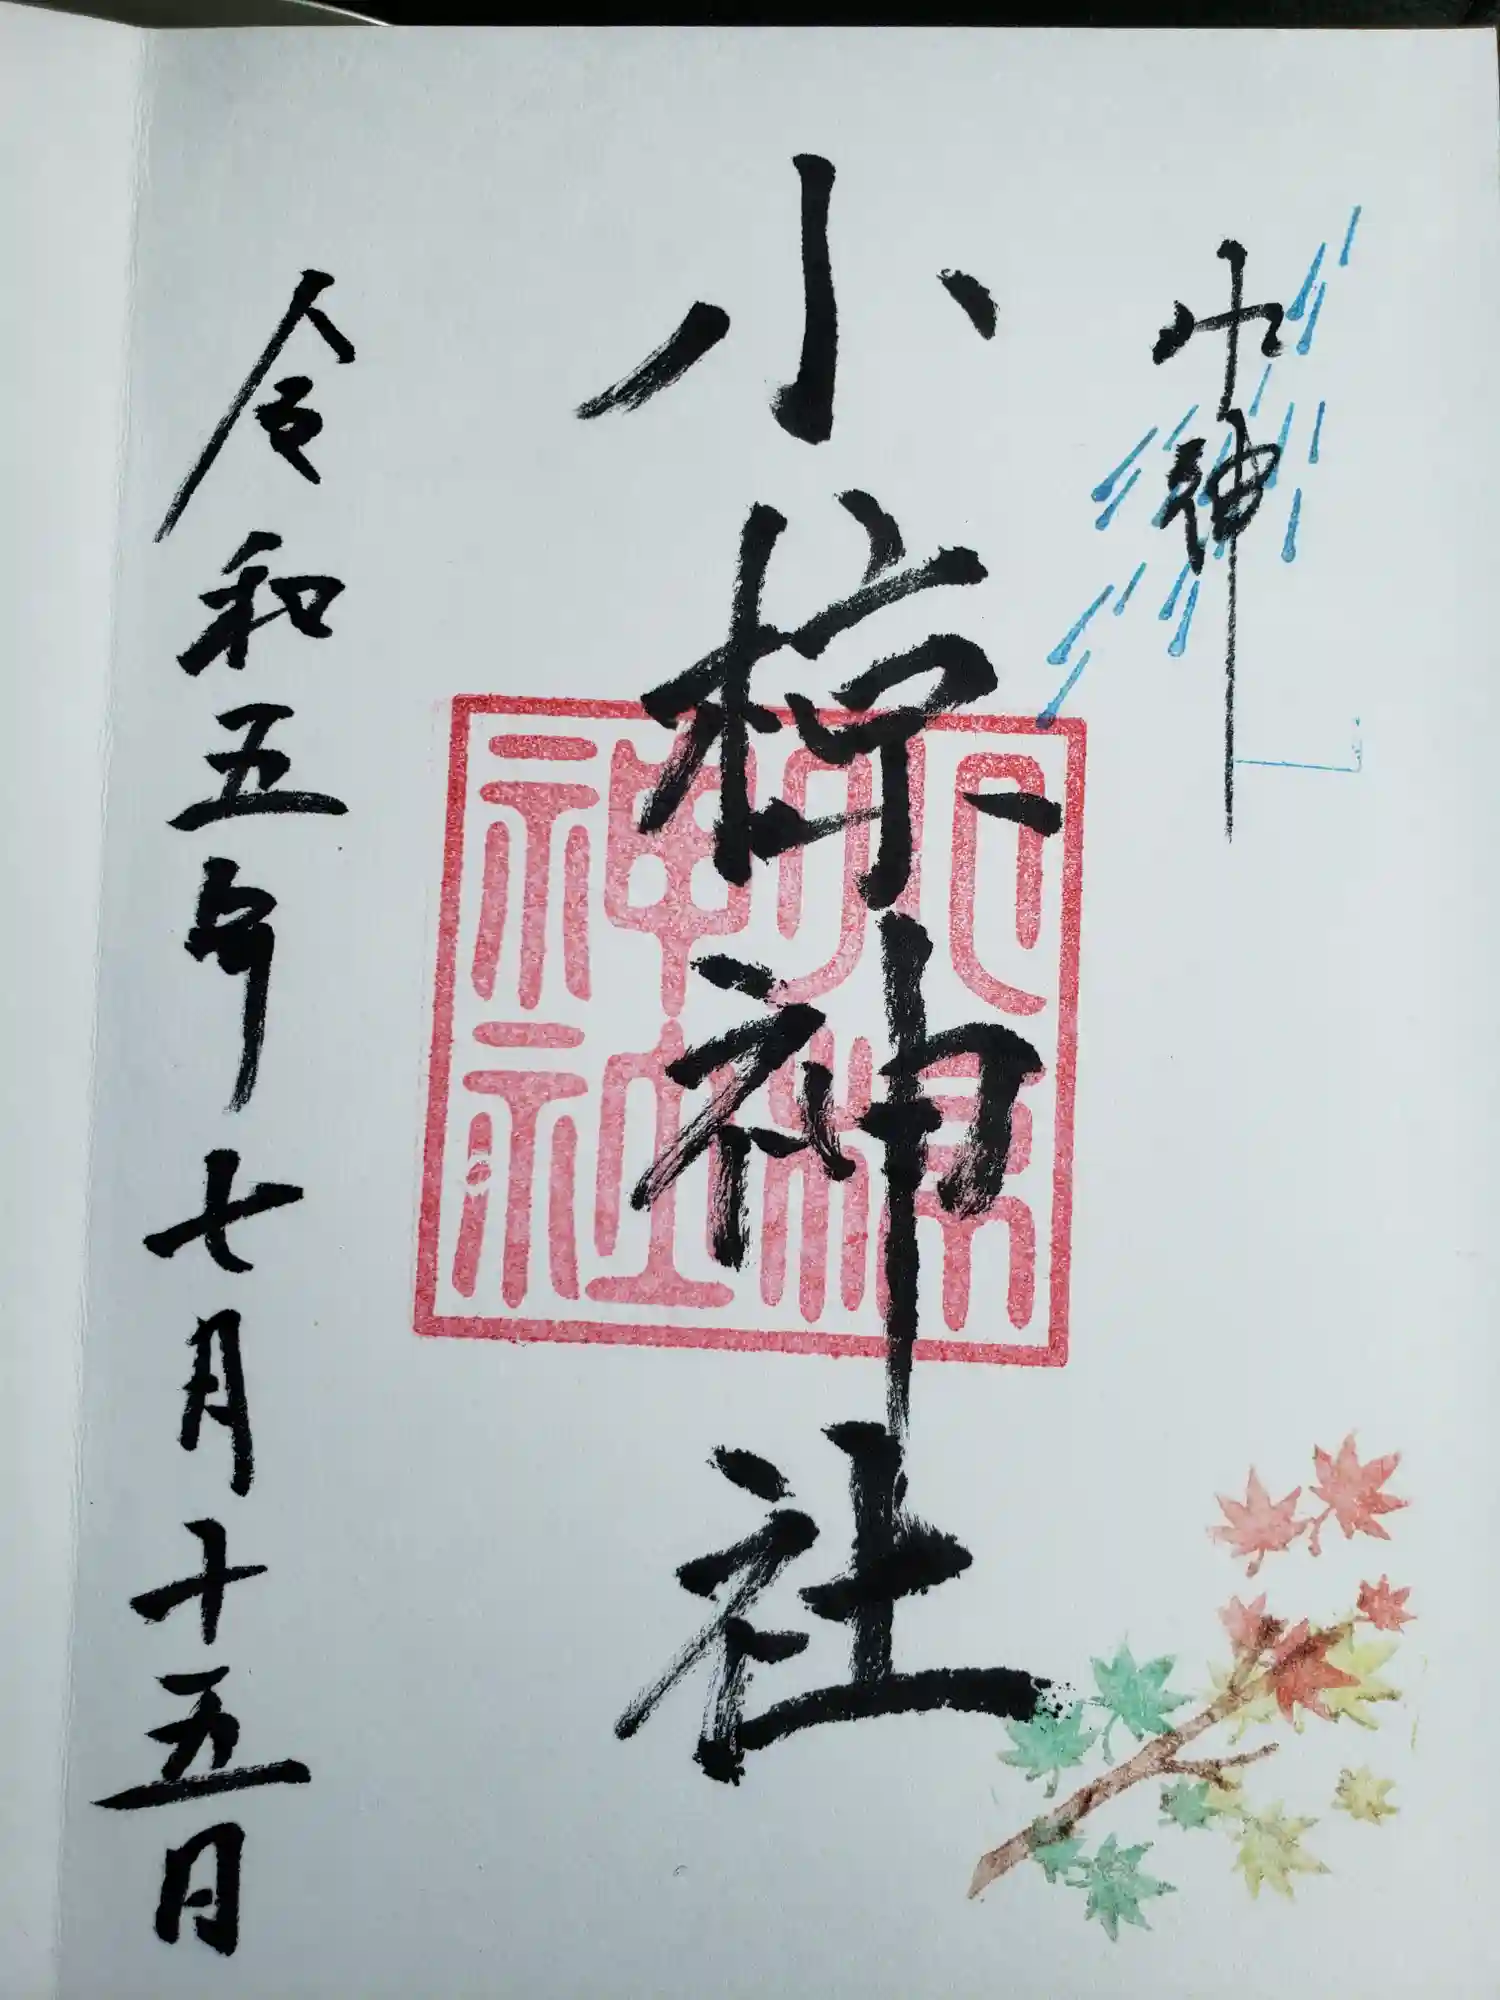 神
小椋神社
小椋
神社
令和五年七月十五日